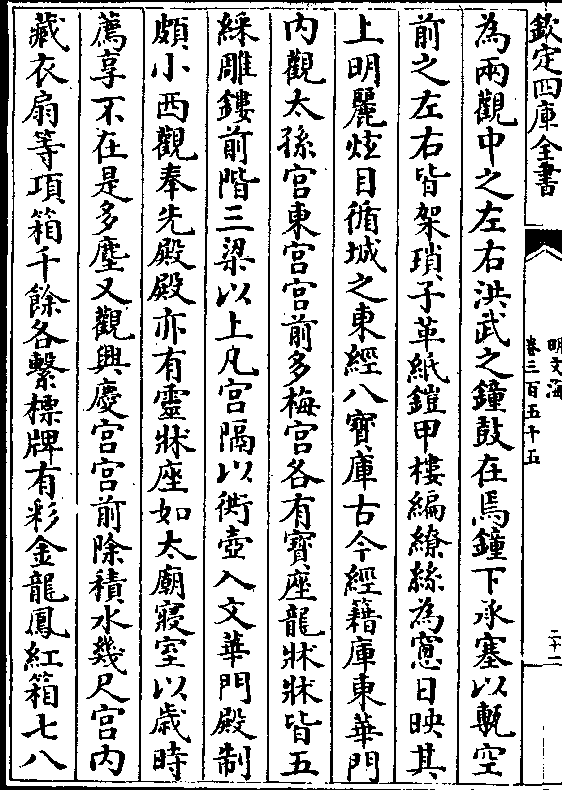 欽定四庫全書
明文海
卷三百五十五
二十一
為兩觀中之左右洪武之鐘鼓在焉鐘下承塞以甎空
前之左右皆架瑣子革紙鎧甲樓編繚絲為窻日映其
上明麗炫目循城之東經八寳庫古今經籍庫東華門
内觀太孫宫東宫宫前多梅宫各有寳座龍牀牀皆五
綵雕鏤前階三梁以上凡宫隔以衖壺入文華門殿制
頗小西觀奉先殿殿亦有靈牀座如太廟寢室以歲時
薦享不在是多塵又觀興慶宫宫前除積水幾尺宫内
藏衣扇等項箱千餘各繫標牌有彩金龍鳳紅箱七八